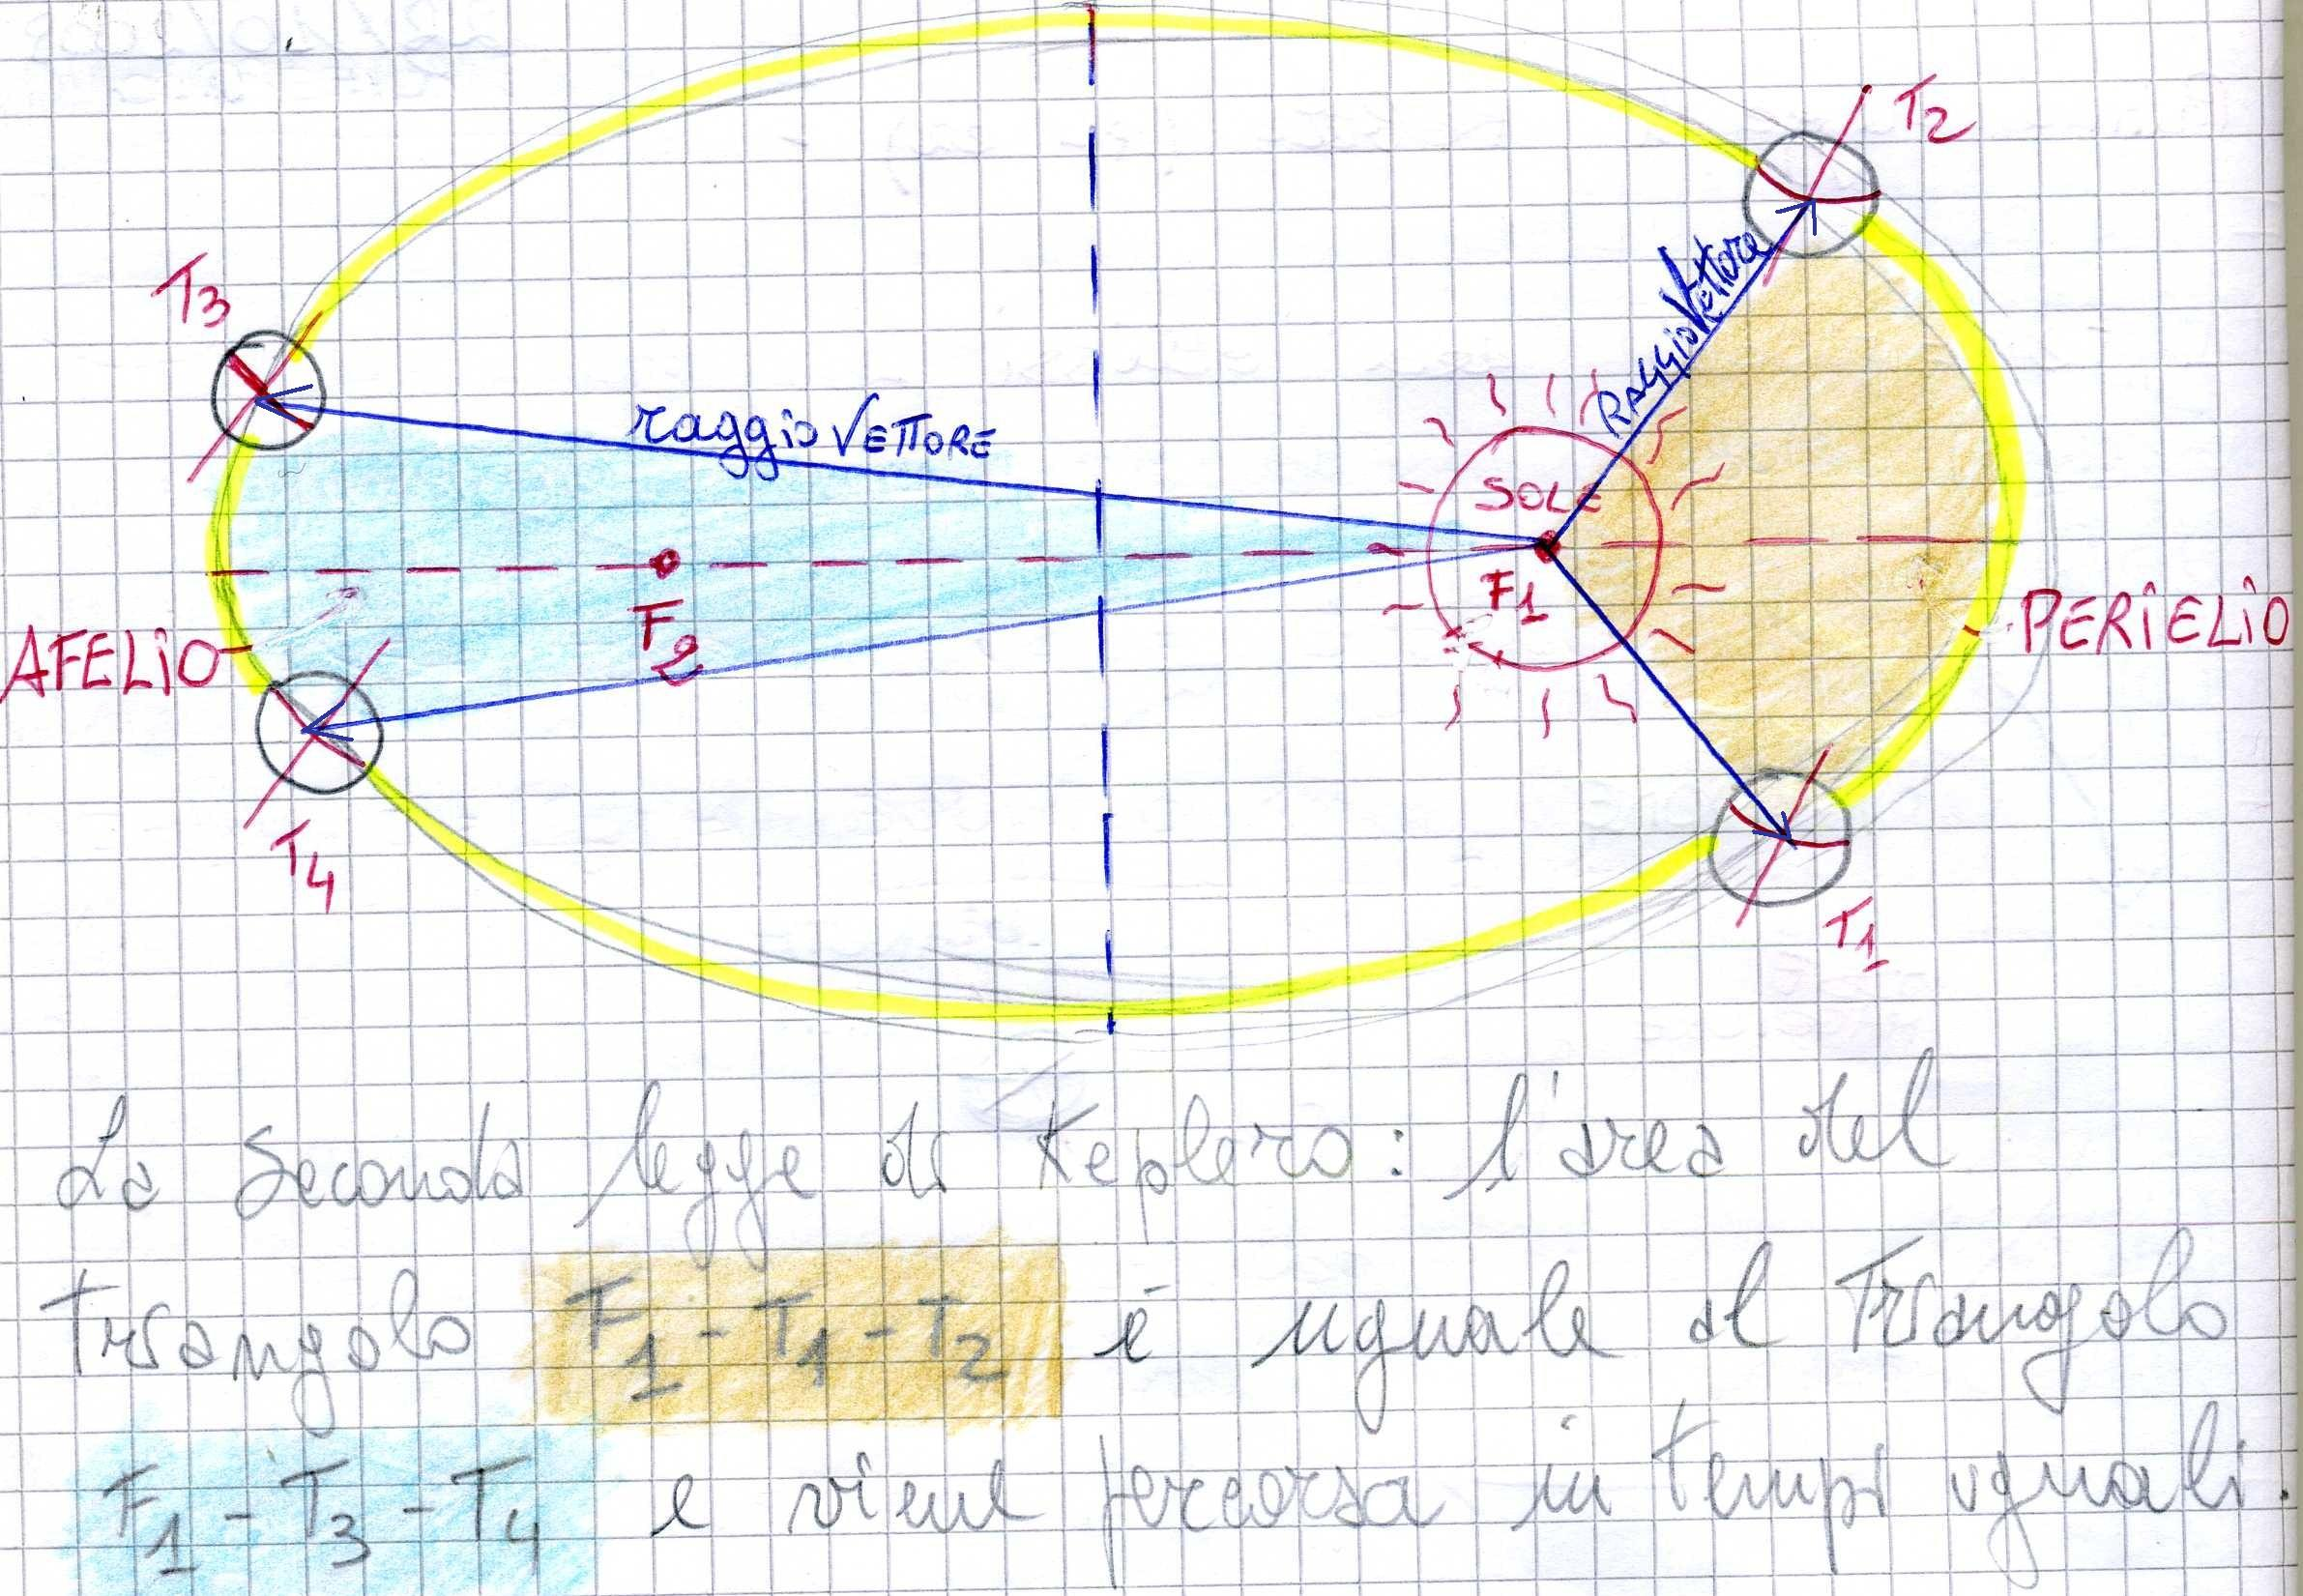 T2
T3
Raggio Vettore
raggio VETTORE
SOLE
F1
F2
AFELIO
PERIELIO
T4
T1
La Seconda legge di Keplero: l'area del
Triangolo F1 - T1 - T2 è uguale al Triangolo
F1 - T3 - T4 e viene percorsa in tempi uguali.